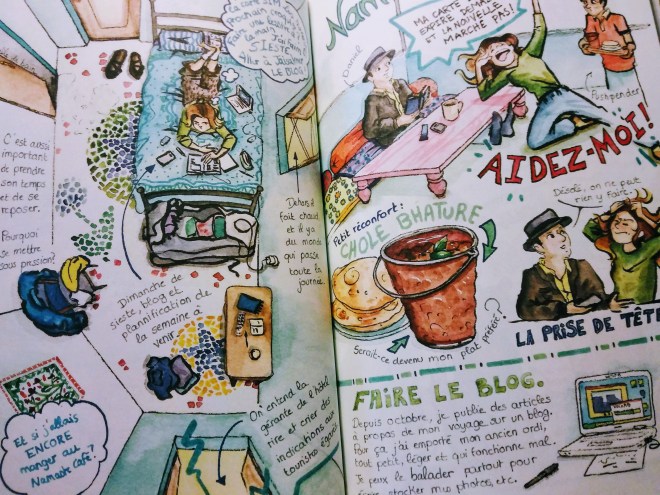 prochain
MA SIESTE
LE BLOG!
C'est aussi
important
de prendre
son temps
et de se
reposer.
Pourquoi
se mettre
sous pression?
Dehors, il
fait chaud
et il y a
du monde
qui passe
toute la
journée.
Dimanche de
sieste, blog et
plannification de
la semaine à
venir.
Et si j'allais
ENCORE
manger au
Namaste Café?
On entend la
gérante de l'hôtel
rire et crier des
indications aux
touristes égarés
Nam
MA CARTE SIM
EXPIRE DEMAIN
ET LA NOUVELLE
MARCHE PAS!
Daniel
Pushpender
AIDEZ-MOI!
Petit réconfort:
CHOLE BHATURE
Serait-ce devenu mon plat préféré?
Désolé, on ne peut
rien y faire.
LA PRISE DE TÊTE
FAIRE LE BLOG.
Depuis octobre, je publie des articles
à propos de mon voyage sur un blog.
Pour ça j'ai emporté mon ancien ordi,
tout petit, léger et qui fonctionne mal.
Je peux le balader partout pour
stocker mes photos, etc.